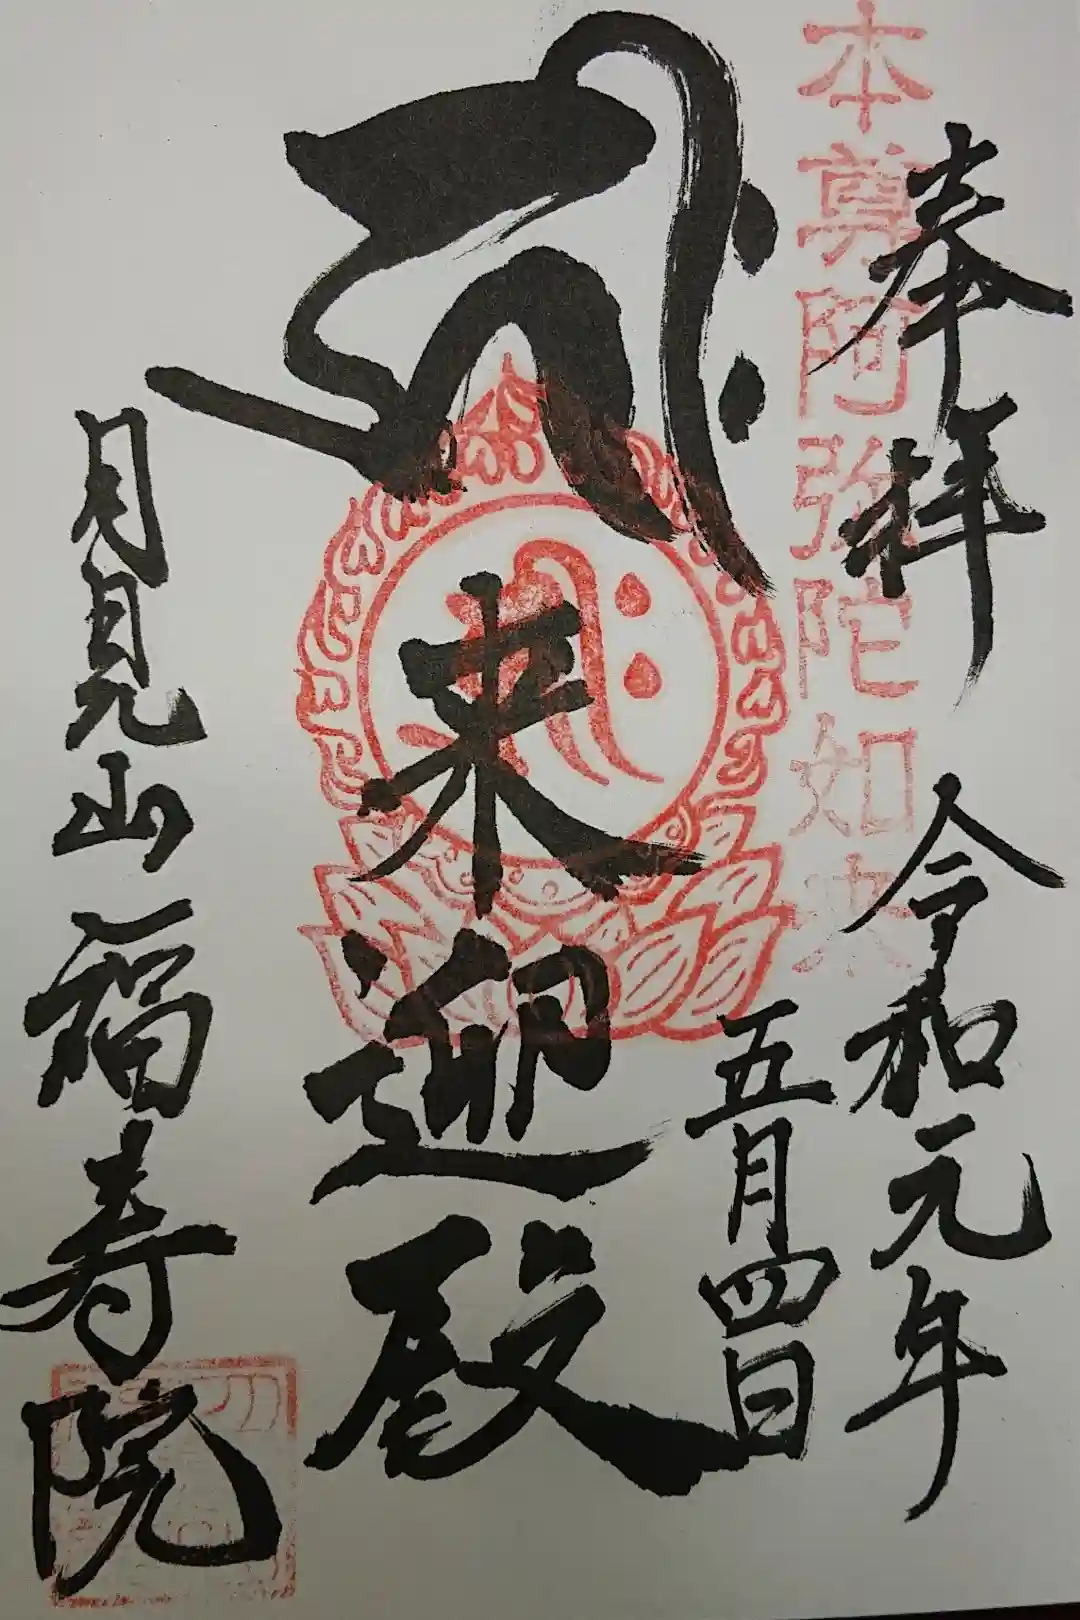 本尊阿弥陀如来
奉拝
令和元年
五月四日
来迎殿
月見山福寿院